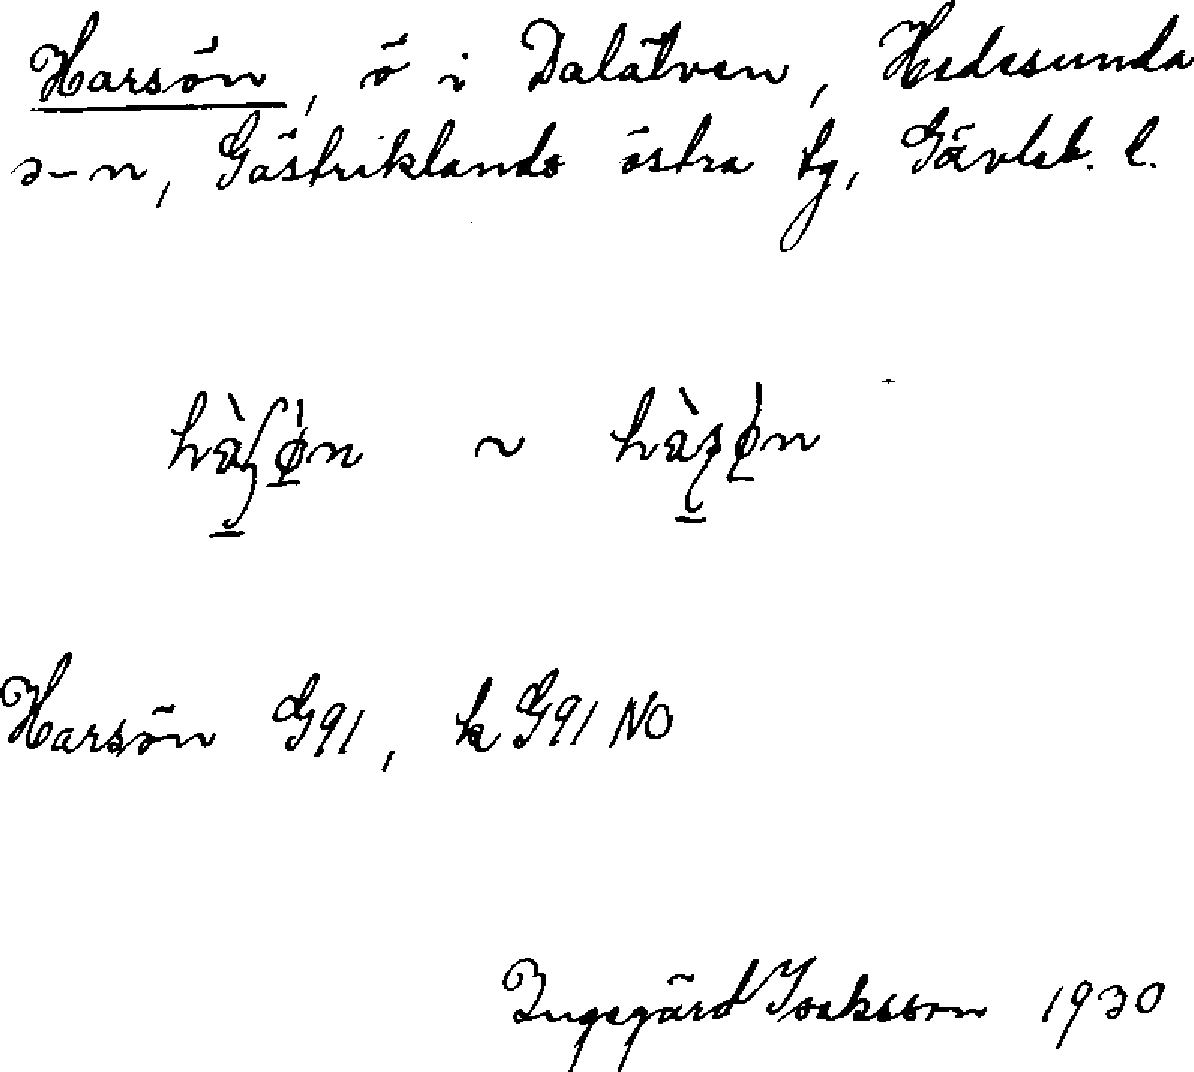 Harsön, ö i Dalälven, Hedesunda
s-n, Gästriklands östra tg, Gävleb. l.
Harsön G91, k G91 NO
Ingegärd Isaksson 1930